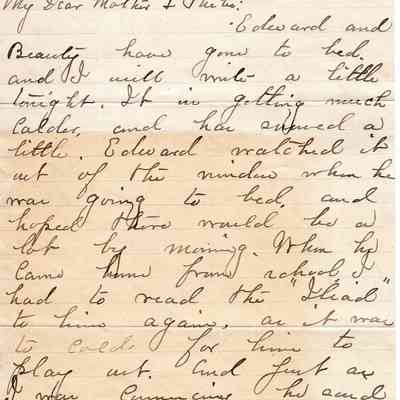 My Dear Mother & 
Edward and
Beauty have gone to bed,
and I will write a little
tonight. It is getting much
colder, and has snowed a
little. Edward watched it
out of the window when he
was going to bed, and
hoped there would be a
lot by morning. When he
came home from school, I
had to read the "Iliad"
to him again, as it was
to cold for him to
play out. And just as
I was commencing he said